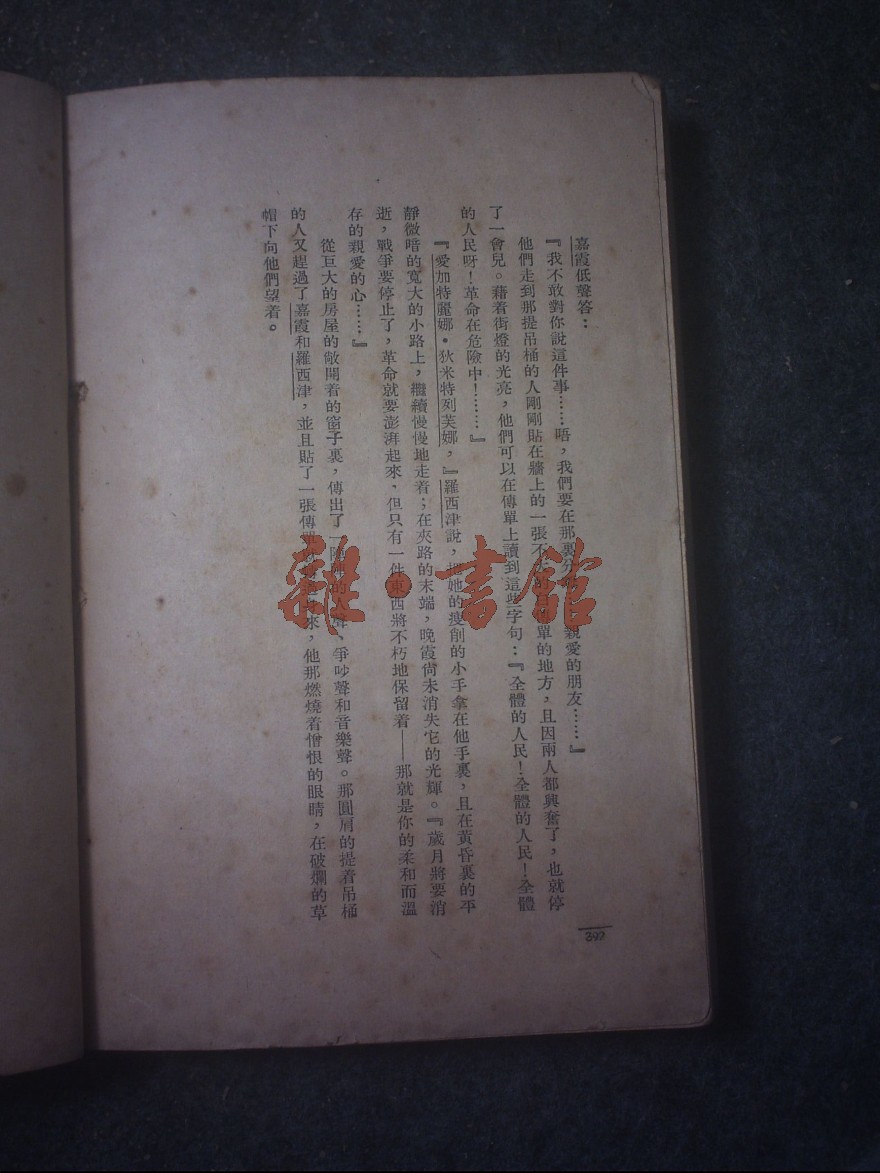 嘉霞低聲答：
『我不敢對你說這件事……唔，我們要在那裏分 親愛的朋友……』
他們走到那提吊桶的人剛剛貼在牆上的一張不 單的地方，且因兩人都興奮了，也就停
了一會兒。藉着街燈的光亮，他們可以在傳單上讀到這些字句：『全體的人民！全體的人民！全體
的人民呀！革命在危險中！……』
『愛加特麗娜·狄米特列芙娜，』羅西津說，把她的瘦削的小手拿在他手裏，且在黃昏裏的平
靜微喈的寬大的小路上，繼續慢慢地走着；在夾路的末端，晚霞尚未消失它的光輝。『歲月將要消
逝，戰爭要停止了，革命就要澎湃起來，但只有一件東西將不朽地保留着——那就是你的柔和而溫
存的親愛的心……』
從巨大的房屋的敞開着的窗子裏，傳出了一陣 的人聲、爭吵聲和音樂聲。那圓肩的提着吊桶
的人又趕過了嘉霞和羅西津，並且貼了一張傳單 來，他那燃燒着憎恨的眼睛，在破爛的草
帽下向他們望着。
397
雜·書館